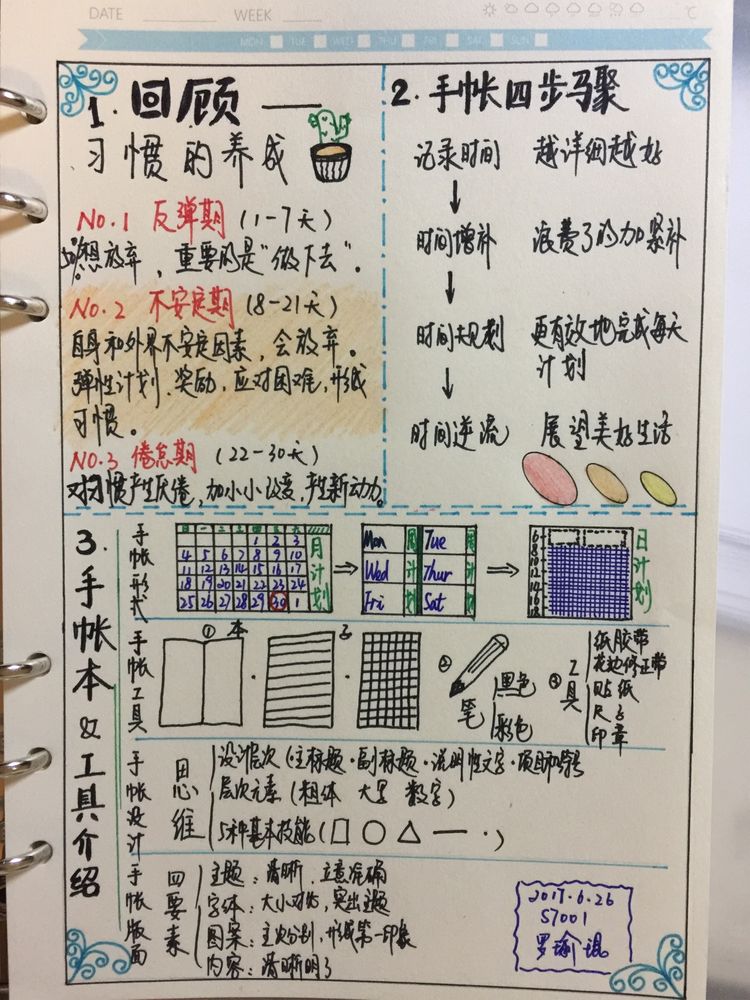 DATE
WEEK
℃
MON TUE WED THU FRI SAT SUN
1. 回顾 —
习惯的养成
NO.1 反弹期 (1-7天)
想放弃，重要的是“做下去”。
NO.2 不安定期 (8-21天)
自身和外界不安定因素，会放弃。
弹性计划、奖励，应对困难，形成
习惯。
NO.3 倦怠期 (22-30天)
对习惯产生厌倦，加小小改变，产生新动力。
2. 手帐四步骤
记录时间 越详细越好
↓
时间增补 浪费了的加紧补
↓
时间规划 更有效地完成每天
计划
↓
时间逆流 展望美好生活
3. 手帐本&工具介绍
手帐形式
日 一 二 三 四 五 六
1 2 3
4 5 6 7 8 9 10
11 12 13 14 15 16 17
18 19 20 21 22 23 24
25 26 27 28 29 30 1
月计划
⇒
Mon 周 Tue 周
Wed 计 Thur 计
Fri 划 Sat 划
⇒
6
8
10
12
14
16
18
日计划
手帐工具
① 本子
② 笔
黑色
彩色
③ 工具
纸胶带
花边修正带
贴纸
尺子
印章
手帐设计
思维
设计层次 (主标题·副标题·说明性文字·项目和符号
层次元素 (粗体 大写 数字)
5种基本技能 (□ ○ △ — ·)
手帐版面
四要素
主题：清晰，立意准确
字体：大小对比，突出主题
图案：主次分别，形成第一印象
内容：清晰明了
2017.6.26
S7001